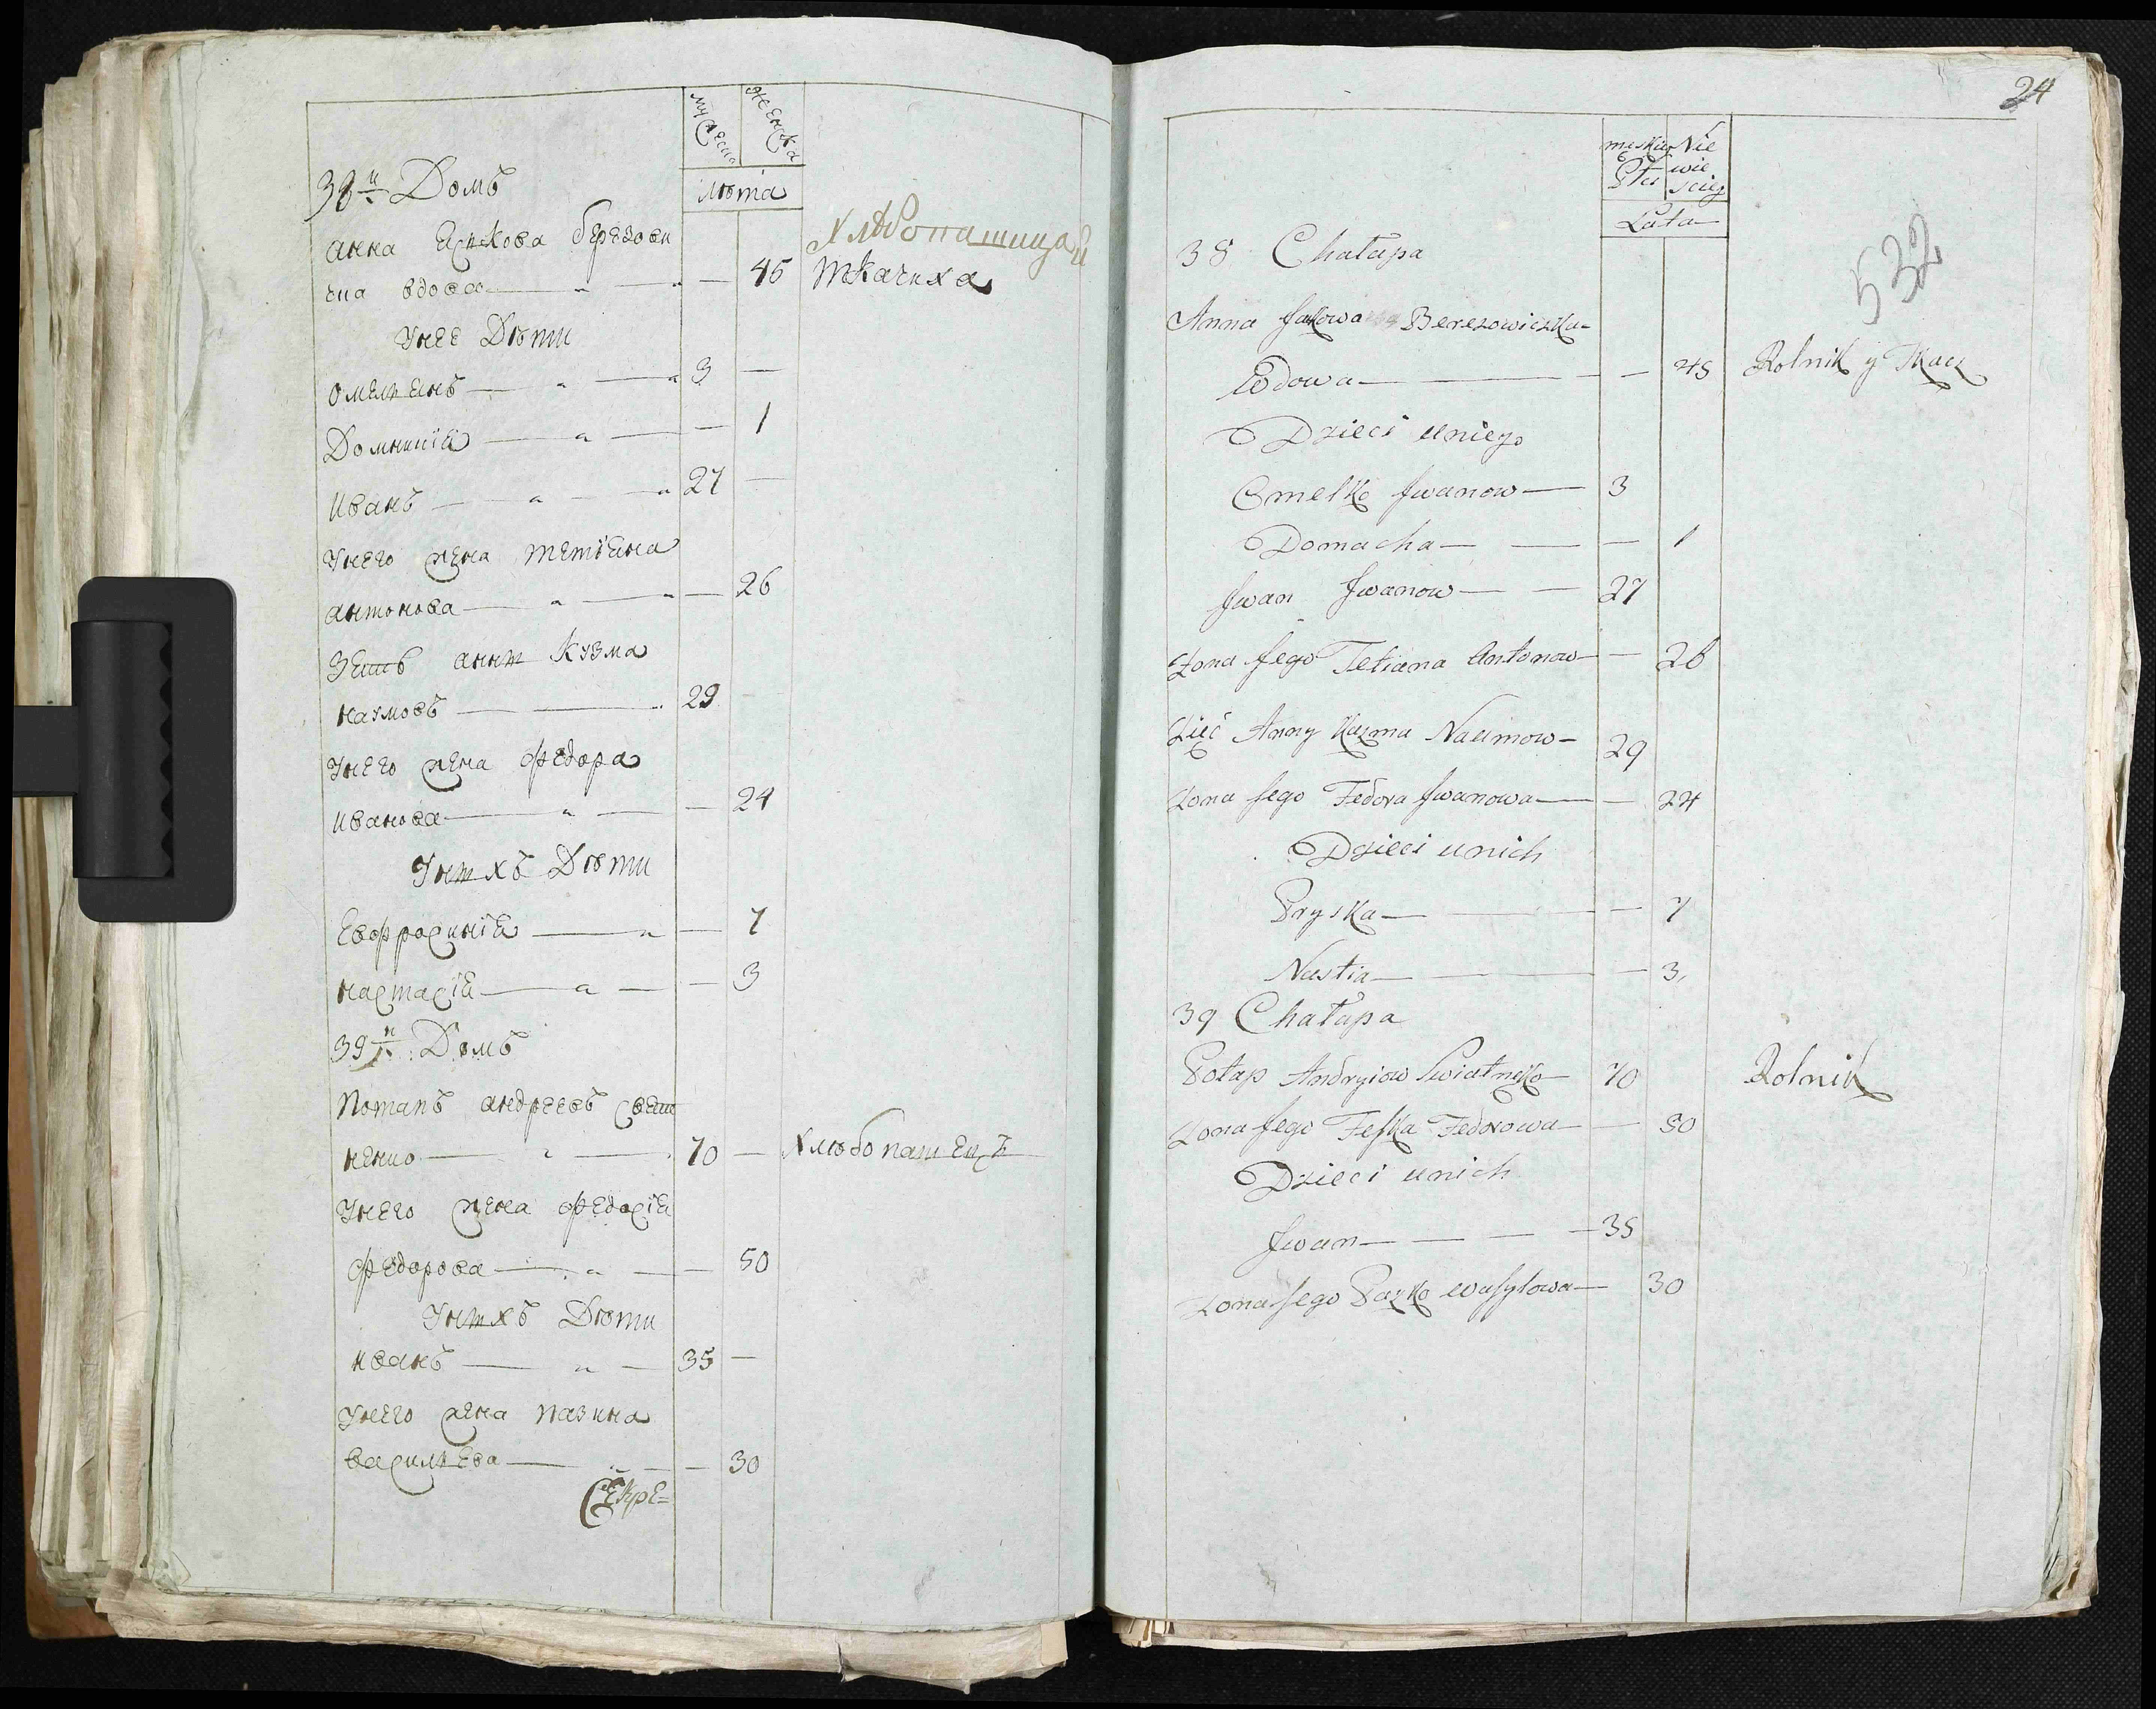 мужеска женска
лѣта
38й Домъ
Анна Яцкова Березови
чна вдова — 45 Хлѣбопашица и
ткачиха
У нее Дѣти
Омельянъ — 3 —
Домникія — — 1
Иванъ — 27 —
У него жена Тетіяна
Антонова — — 26
Зять Анны Кузма
Наумовъ — 29
У него жена Федора
Иванова — — 24
У нихъ Дѣти
Евфросинія — — 7
Настасія — — 3
39й Домъ
Потапъ Андреевъ Свят
ненко — 70 — Хлѣбопашецъ
У него жена Федосія
Федорова — — 50
У нихъ Дѣти
Иванъ — 35 —
У него жена Пазина
Васильева — — 30
Секре=
24
męskiey Płci Nie wie sciey
Lata
532
38 Chałupa
Anna Jakowa Berezowiczka
Wdowa — — 45 Rolnik y Tkacz
Dzieci u niego
Omelko Jwanow — 3
Domacha — — 1
Jwan Jwanow — 27
Zona Jego Tetiana Antonow — — 26
Zięć Anny Kuzma Naumow — 29
Zona Jego Fedora Jwanowa — — 24
Dzieci u nich
Pryska — — 7
Nastia — — 3
39 Chałupa
Potap Andryiow Swiatnęko 70 Rolnik
Zona Jego Feska Fedorowa — — 50
Dzieci u nich
Jwan — — 35
Zona Jego Pazko Wasylowa — 30